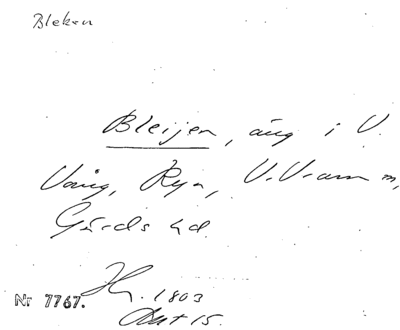 Bleken
Bleijen, äng i V.
Vång, Rya, V. Vram sn,
Gärds hd.
Nr 7767.
H. 1803
Akt 15.